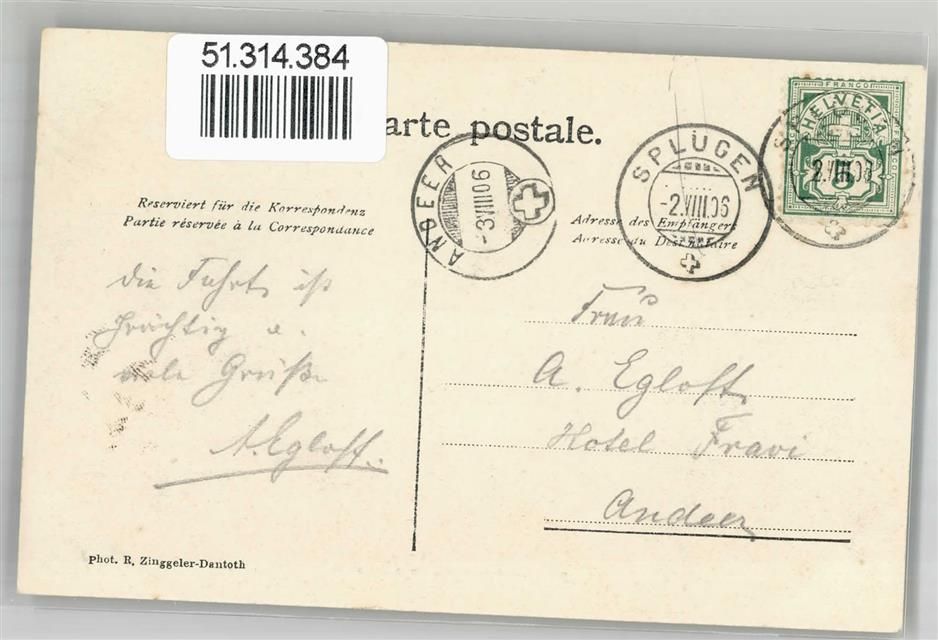 51.314.384
arte postale.
FRANCO
HELVETIA
5
2.VIII.06
SPLÜGEN
-2.VIII.06
ANDEER
-3VIII06
Reserviert für die Korrespondenz
Partie réservée à la Correspondance
Adresse des Empfängers
Adresse du Destinataire
die Fahrt ist
prächtig u.
viele Grüße
A. Egloff.
Frau
A. Egloff,
Hotel Fravi
Andeer
Phot. R. Zinggeler-Dantoth